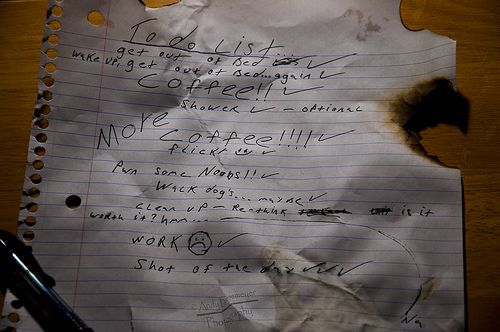 To do List...
get out of Bed ✓
wake up, get out of Bed...again ✓
Coffee!! ✓
Shower ✓ - optional
More Coffee!!!! ✓
flickr ✓
Pwn some Noobs!! ✓
Wack dog's... maybe ✓
clean up - Re-think is it
worth it? hmm...
Na
WORK ☹ ✓
Shot of the day ✓ ✓ ✓
Photography